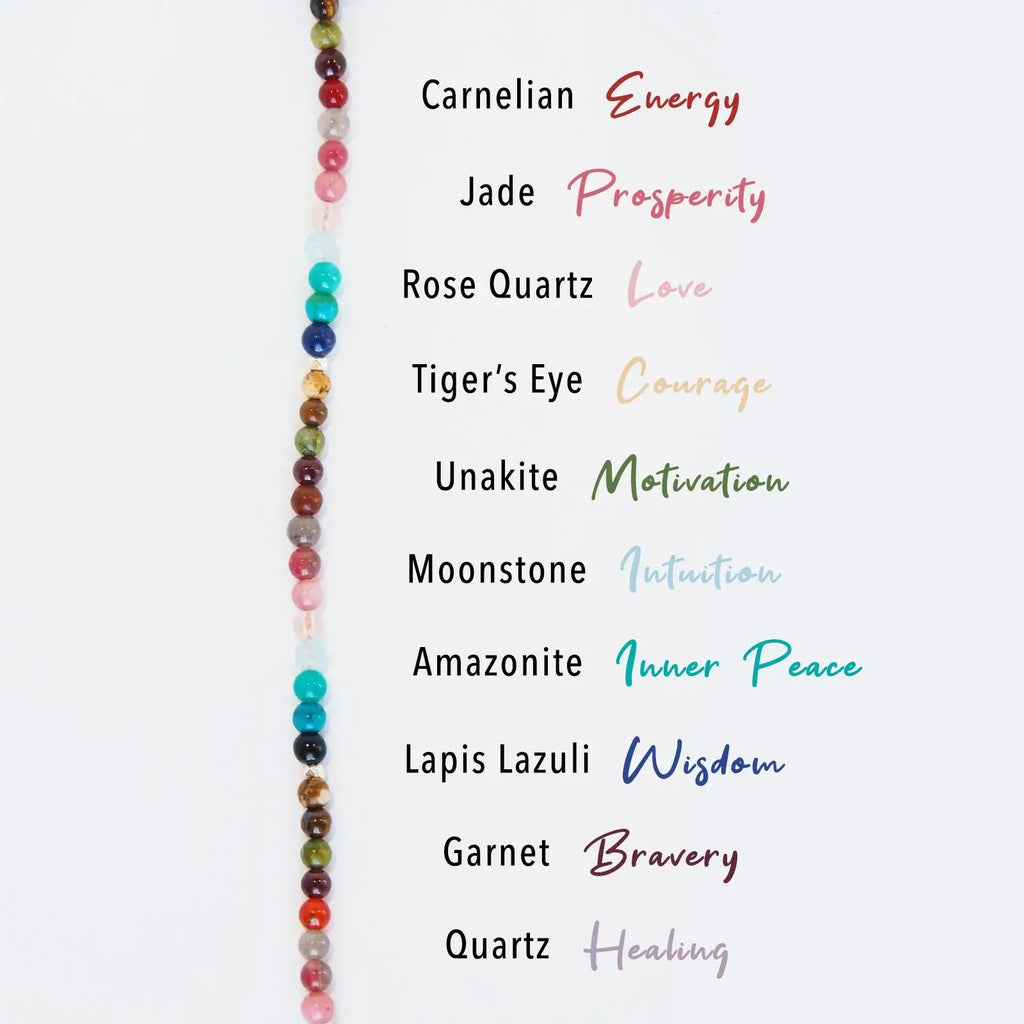 Carnelian Energy
Jade Prosperity
Rose Quartz Love
Tiger‘s Eye Courage
Unakite Motivation
Moonstone Intuition
Amazonite Inner Peace
Lapis Lazuli Wisdom
Garnet Bravery
Quartz Healing